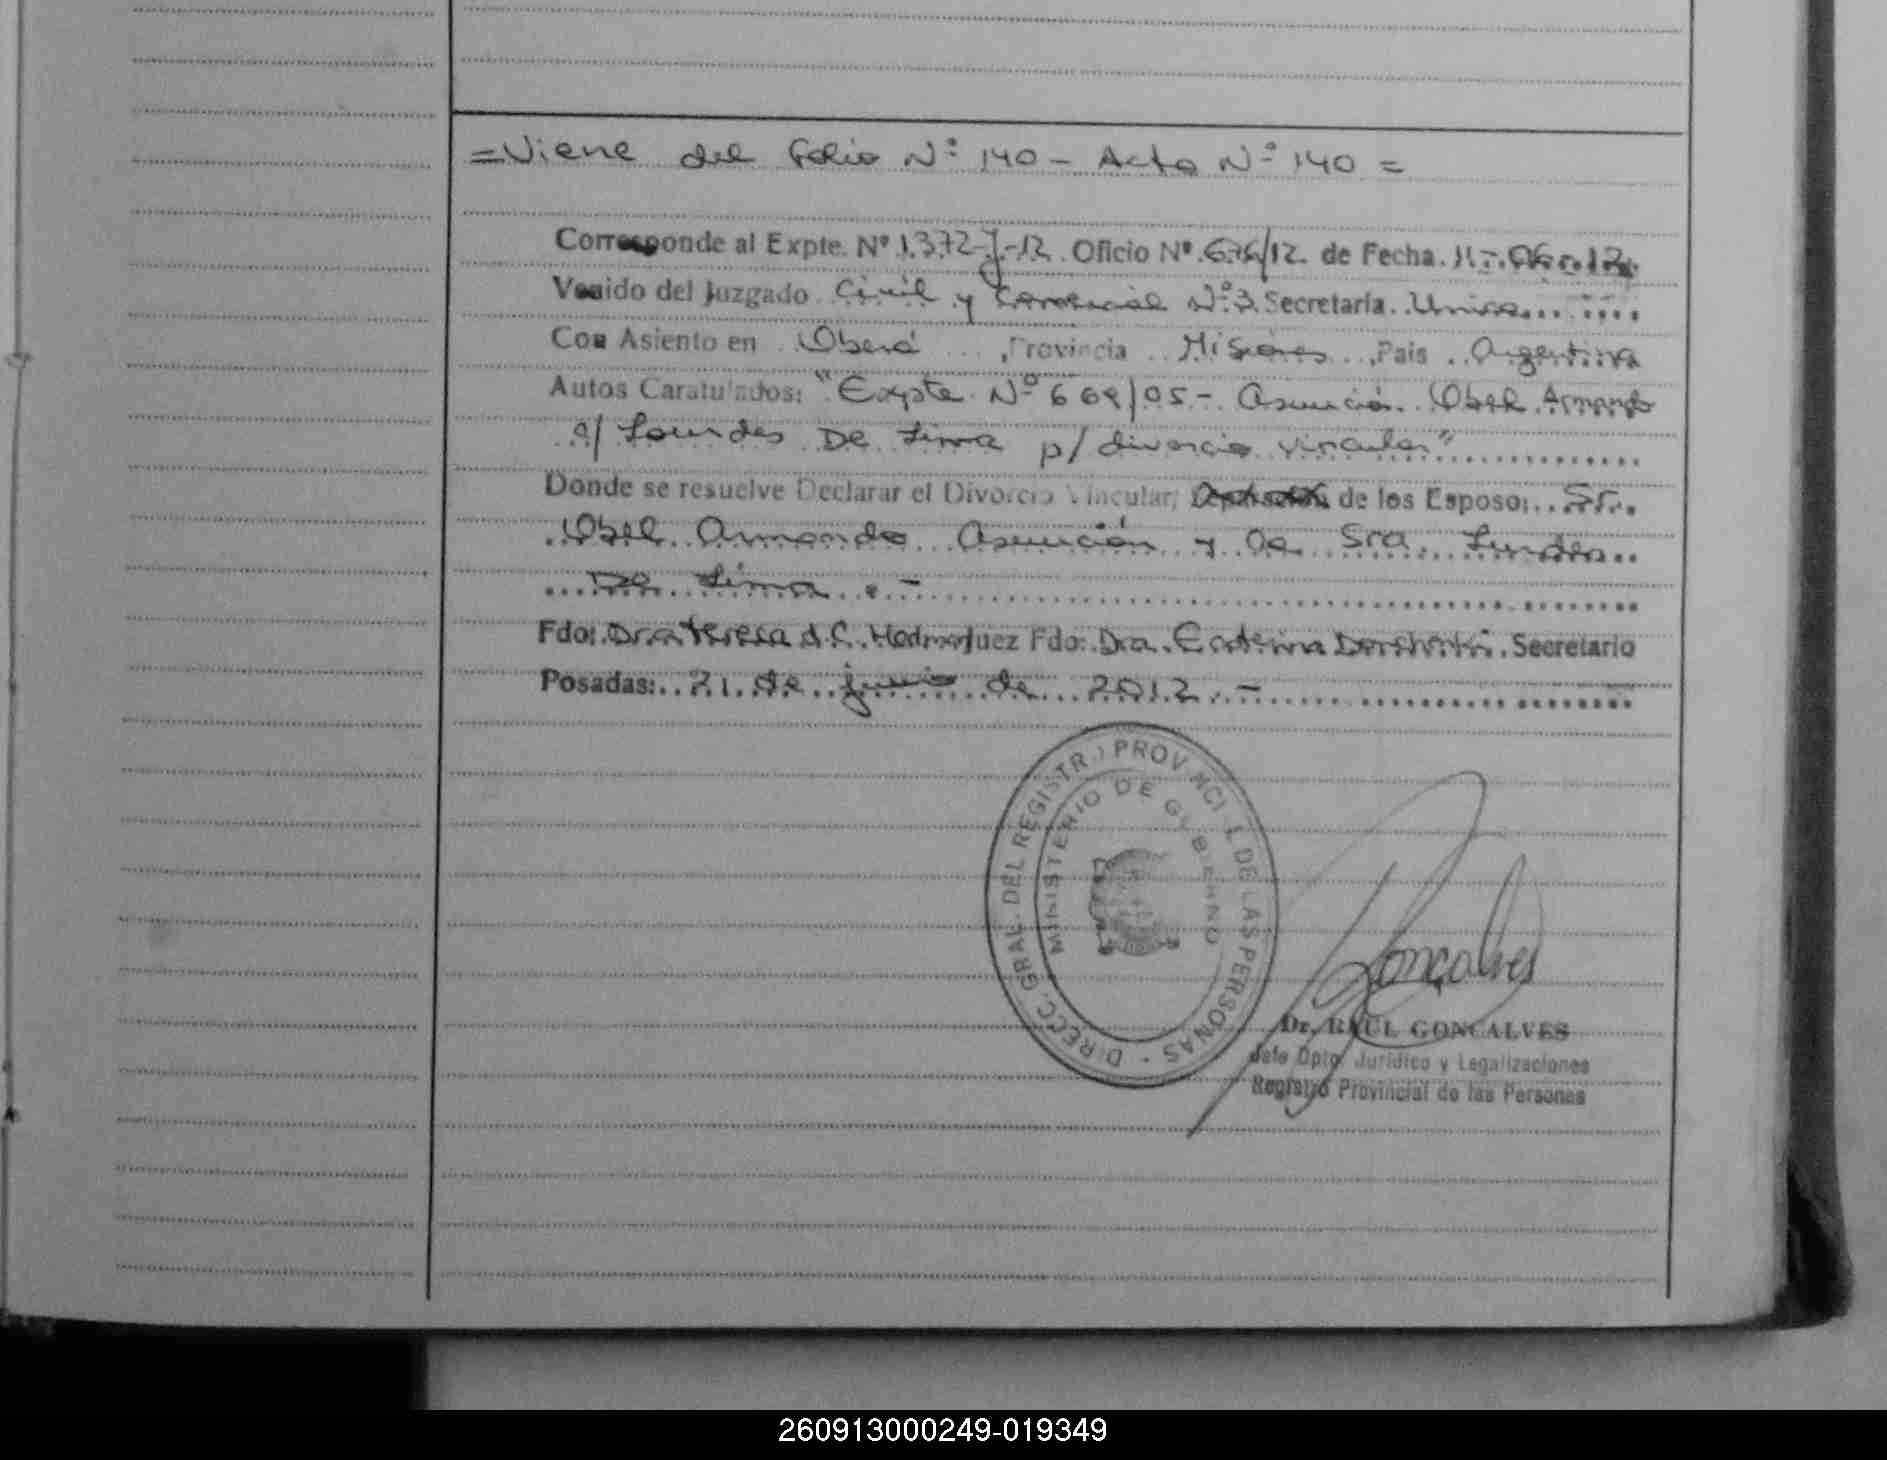 =Viene del Folio Nº 140 - Acta Nº 140 =
Corresponde al Expte. Nº 1372-J-12. Oficio Nº 676/12. de Fecha. 11-.06-.12.
Venido del Juzgado Civil y Comercial Nº3. Secretaría. Unica
Con Asiento en Oberá, Provincia Misiones, Pais Argentina
Autos Caratulados: "Expte. Nº 669/05- Asunción Obel Armando
c/ Lourdes De Lima p/ divorcio vincular"
Donde se resuelve Declarar el Divorcio Vincular; de los Esposo: Sr.
Obel Armando Asunción y de Sra. Lourdes
De Lima.-
Fdo: Dra Teresa Fdo: Dra. Secretario
Posadas: 21 de junio de 2012.-
DIRECC. GRAL. DEL REGISTRO PROVINCIAL DE LAS PERSONAS
MINISTERIO DE GOBIERNO
Gonçalves
Dr. RAUL GONCALVES
Jefe Dpto. Jurídico y Legalizaciones
Registro Provincial de las Personas
260913000249-019349